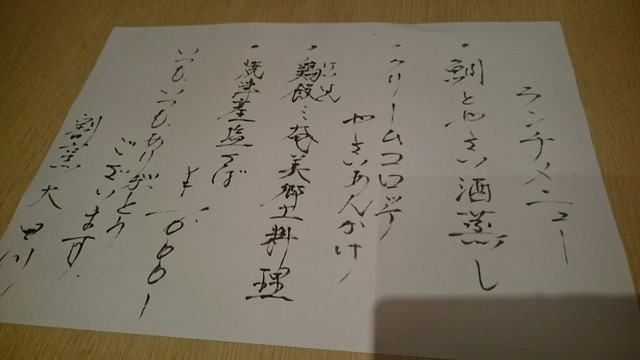 ランチメニュー
・鯛とやさい酒蒸し
・クリームコロッケ
やさいあんかけ
・鶏飯 けいはん ミ奄美郷土料理
・焼津産塩さば
¥1,000ー
いつもいつもありがとう
ございます。
割烹 大